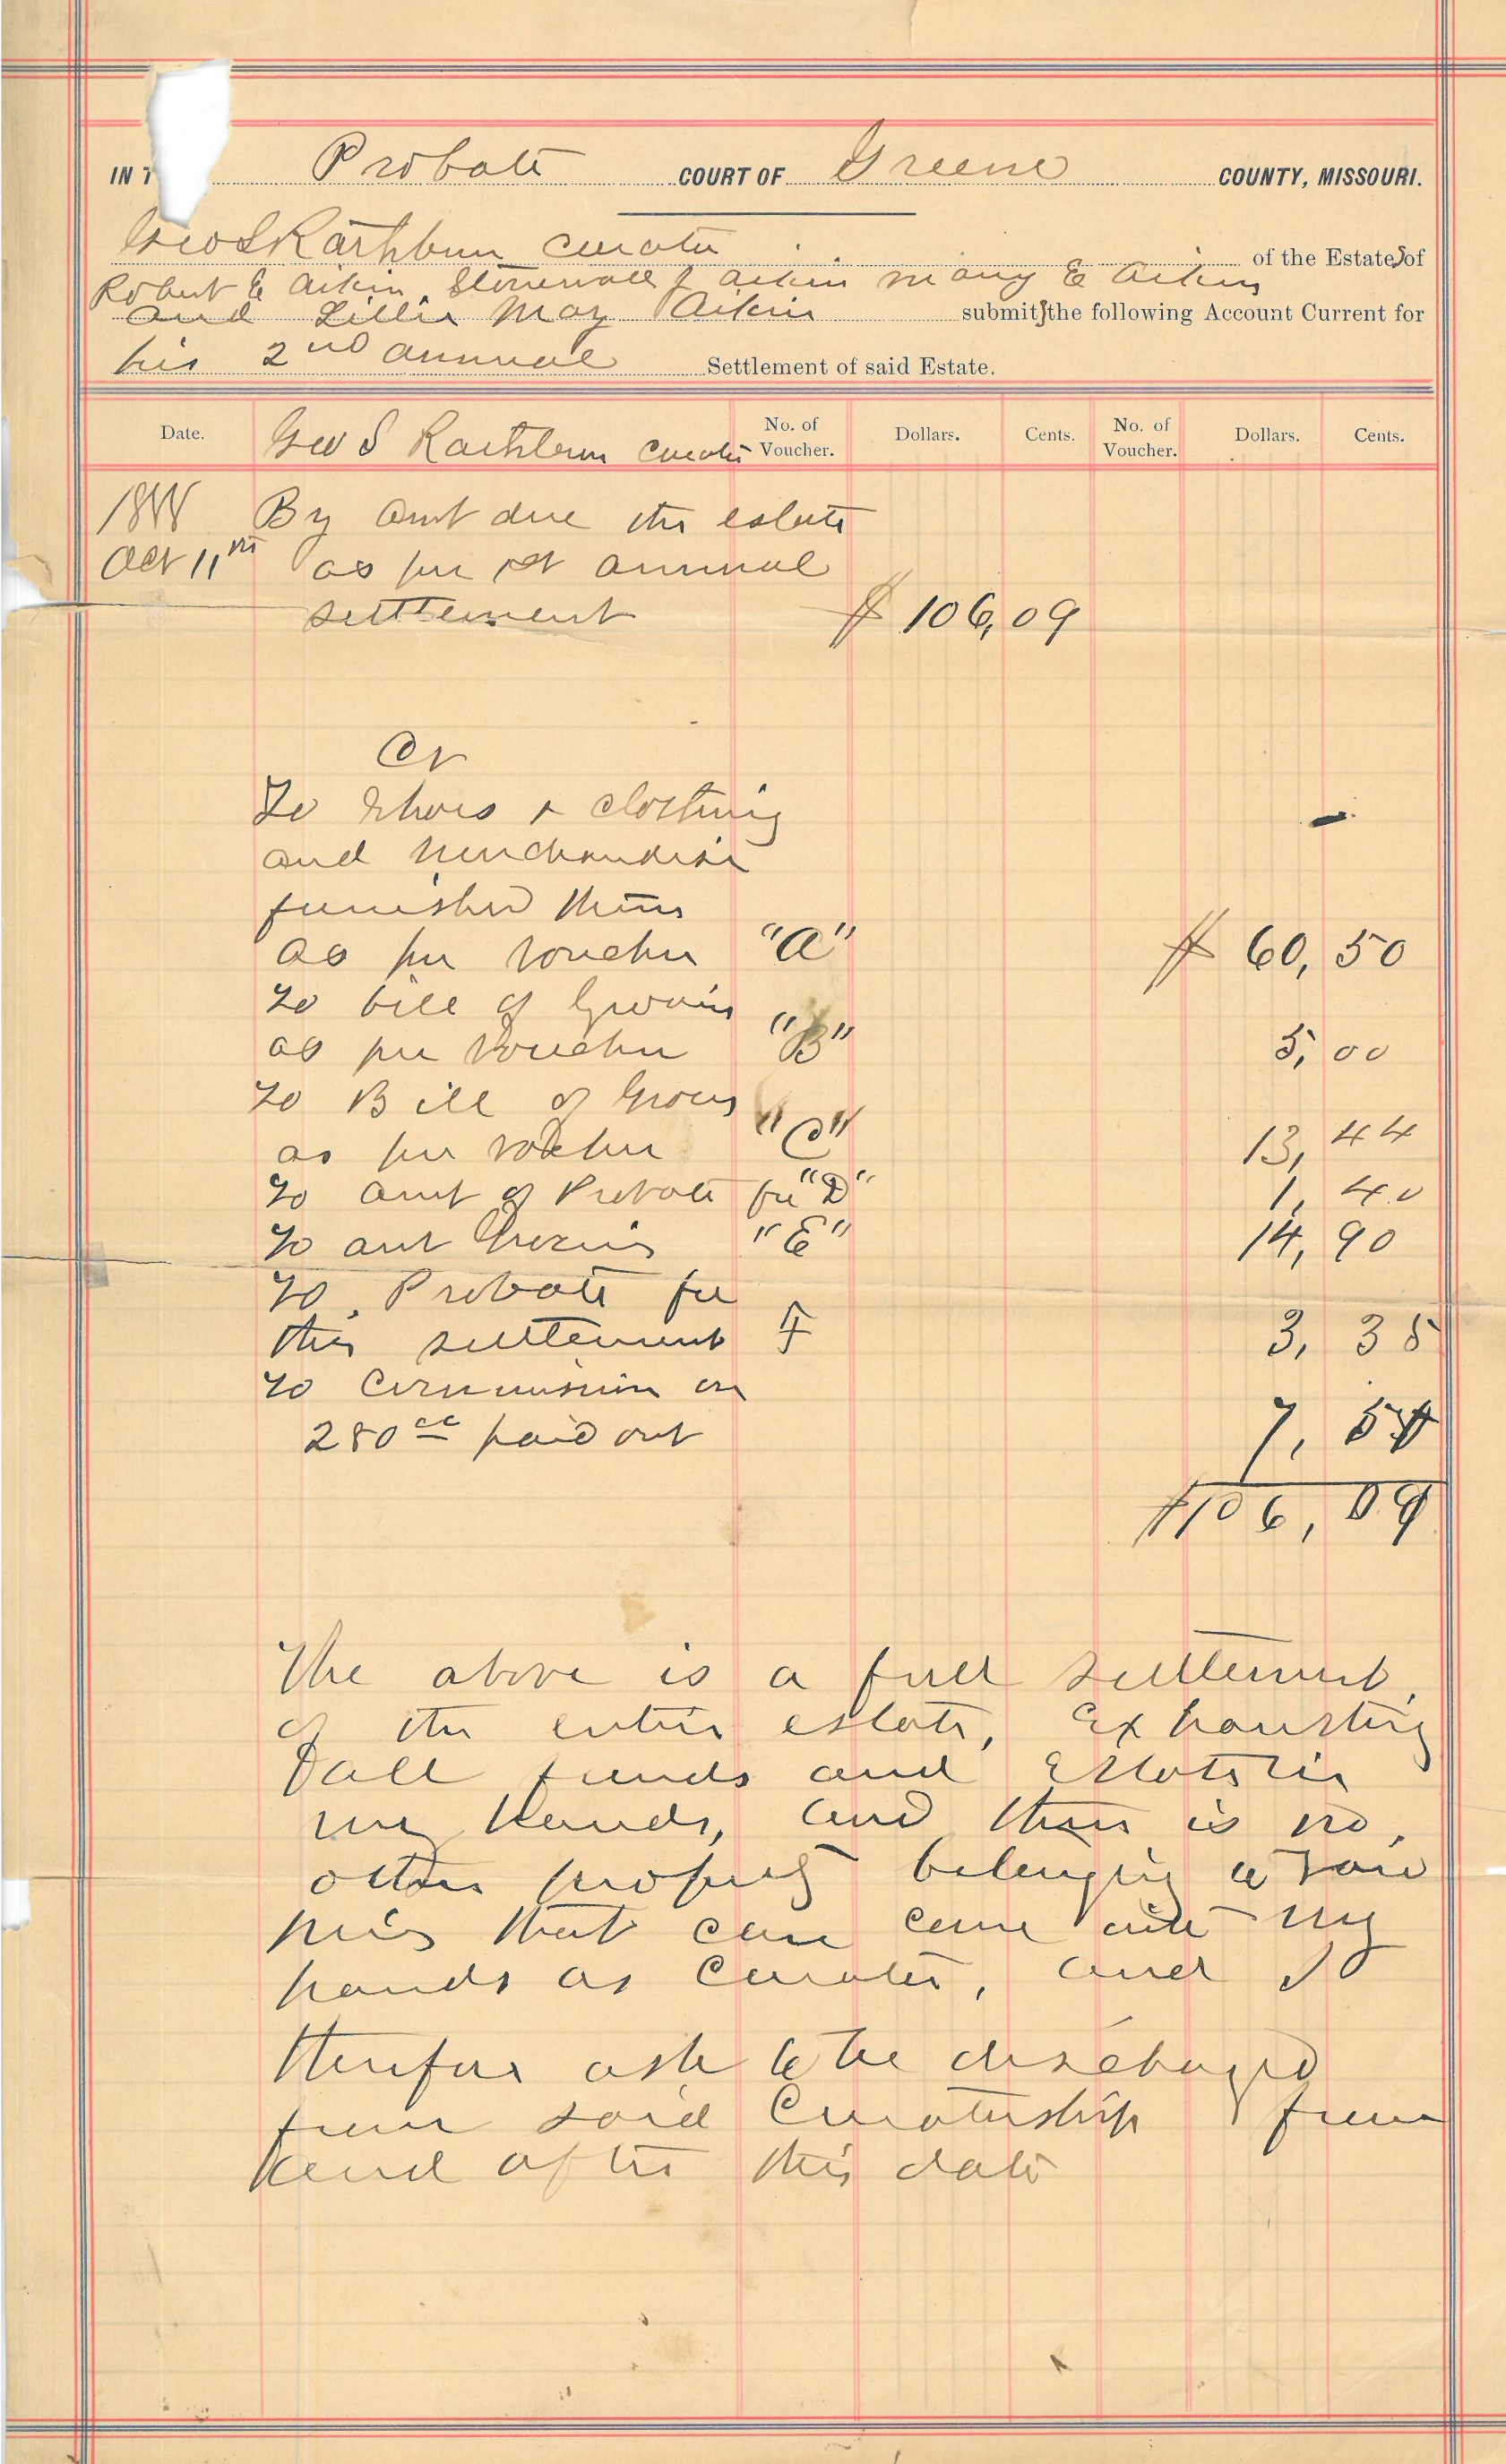 IN T Probate COURT OF Greene COUNTY, MISSOURI.
Geo S Rathbun curator of the Estates of
Robert E Aikin, Stonewall J Aikin Mary E Aikin
and Lillie May Aikin submits the following Account Current for
his 2nd annual Settlement of said Estate.
Date. Geo S Rathbun Curator No. of Voucher. Dollars. Cents. No. of Voucher. Dollars. Cents.
1888 By amt due the estate
Oct 11th as per 1st annual
settlement $ 106,09
Cr
To Shoes & clothing
and merchandise
furnished them
as per voucher "A" $ 60,50
To bill of Groceries
as per Voucher "B" 5,00
To Bill of Groceries
as per voucher "C" 13,44
To amt of Probate fee "D" 1,40
To amt Groceries "E" 14,90
To Probate fee
this settlement F 3,35
To Commission on
280 paid out 7,50
$106,09
The above is a full settlement
of the entire estate, Exhausting
all funds and Estate in
my hands, and there is no
other property belonging to said
that can come into my
hands as Curator, and I
therefore ask to be discharged
from said Curatorship from
and after this date